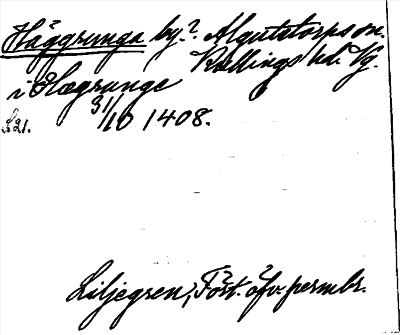 Häggrunga by.? Algutstorps sn.
Kullings hd. Vg.
i Hægrunge
31/10 1408.
L 21.
Liljegren, Fört. öfv. permbr.